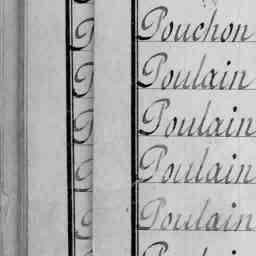 Pouchon
Poulain
Poulain
Poulain
Poulain